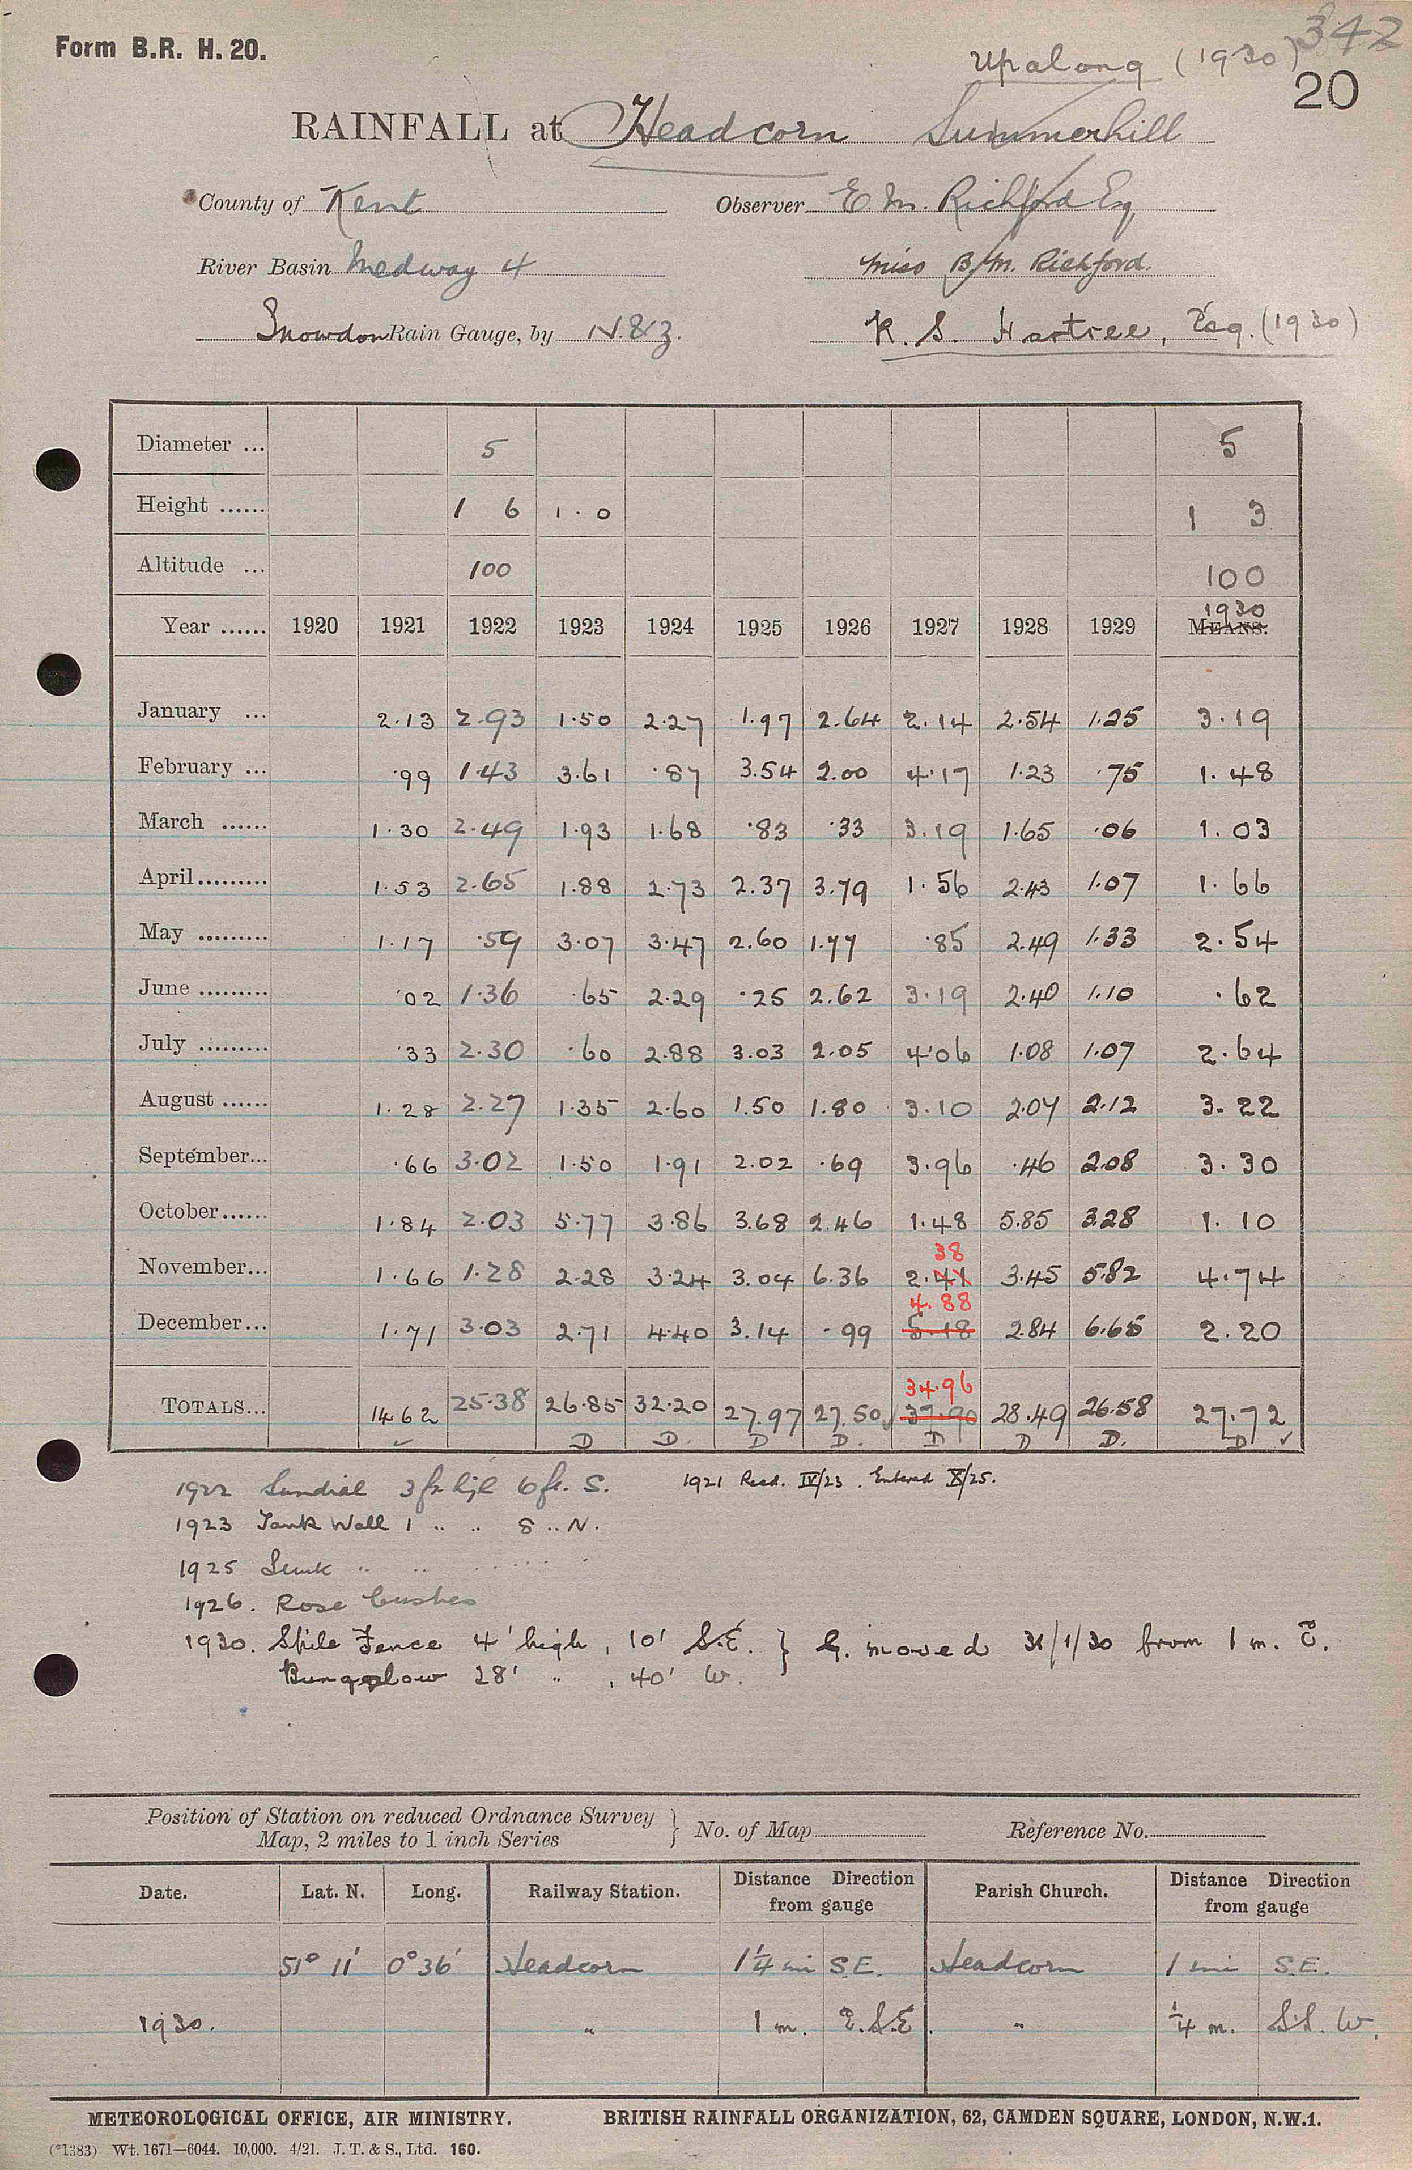 342
Form B.R. H. 20.
Upalong (1930)
20
RAINFALL at Headcorn Summerhill
County of Kent Observer E M. Richford Esq
River Basin Medway 4 Miss B. M. Richford.
Snowdon Rain Gauge, by N. & Z. K. S. Hartree, Esq. (1930)
Diameter ... 5 5
Height ...... 1 6 1 · 0 1 3
Altitude ... 100 100
Year ...... 1920 1921 1922 1923 1924 1925 1926 1927 1928 1929 1930 MEANS.
January ... 2·13 2·93 1·50 2·27 1·97 2·64 2·14 2·54 1·25 3·19
February ... ·99 1·43 3·61 ·87 3·54 2·00 4·17 1·23 ·75 1·48
March ...... 1·30 2·49 1·93 1·68 ·83 ·33 3·19 1·65 ·06 1·03
April......... 1·53 2·65 1·88 2·73 2·37 3·79 1·56 2·43 1·07 1·66
May ......... 1·17 ·59 3·07 3·47 2·60 1·77 ·85 2·49 1·33 2·54
June ......... ·02 1·36 ·65 2·29 ·25 2·62 3·19 2·40 1·10 ·62
July ......... ·33 2·30 ·60 2·88 3·03 2·05 4·06 1·08 1·07 2·64
August ...... 1·28 2·27 1·35 2·60 1·50 1·80 3·10 2·07 2·12 3·22
September... ·66 3·02 1·50 1·91 2·02 ·69 3·96 ·46 2·08 3·30
October...... 1·84 2·03 5·77 3·86 3·68 2·46 1·48 5·85 3·28 1·10
38
November... 1·66 1·28 2·28 3·24 3·04 6·36 2·41 3·45 5·82 4·74
4·88
December... 1·71 3·03 2·71 4·40 3·14 ·99 5·18 2·84 6·65 2·20
34·96
TOTALS... 14 62 25·38 26·85 32·20 27·97 27·50 37·90 28·49 26·58 27·72
✓ D D. D D. D D D. D ✓
1922 Sundial 3 ft high 6 ft. S. 1921 Recd. IV/23. Entered X/25.
1923 Tank Wall 1 " " 8 " N.
1925 Sunk " "
1926. Rose bushes
1930. Stile Fence 4' high, 10' S.E. } G. moved 31/1/30 from 1 m.
Bungalow 28' " , 40' W.
Position of Station on reduced Ordnance Survey Map, 2 miles to 1 inch Series } No. of Map Reference No.
Date. Lat. N. Long. Railway Station. Distance Direction from gauge Parish Church. Distance Direction from gauge
51° 11' 0° 36' Headcorn 1¼ mi S.E. Headcorn 1 mi S.E.
1930. " 1 m. E.S.E. " ¼ m. S.S.W.
METEOROLOGICAL OFFICE, AIR MINISTRY. BRITISH RAINFALL ORGANIZATION, 62, CAMDEN SQUARE, LONDON, N.W.1.
(*1383) Wt. 1671—6044. 10,000. 4/21. J. T. & S., Ltd. 160.